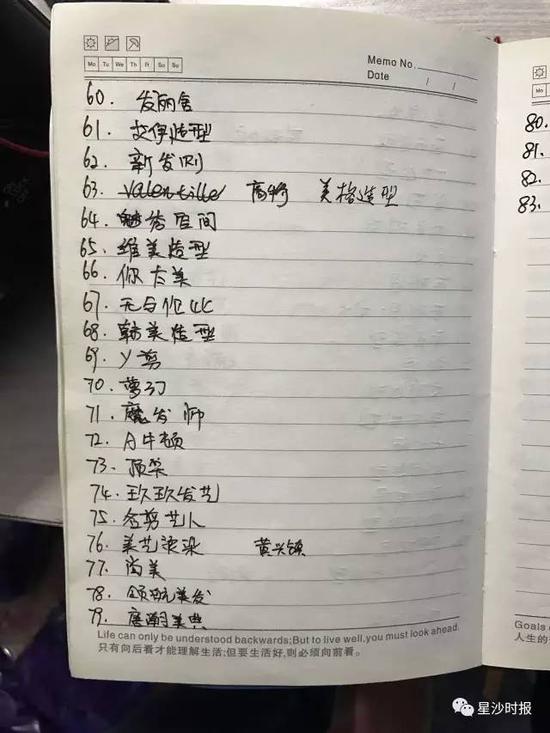 Memo No.
Mo Tu We Th Fr Sa Su
Date / /
60. 发丽舍
61. 造型
62. 新发
63. Valentille 高桥 美格造型
64. 魅秀空间
65. 维美造型
66. 你太美
67. 无与伦比
68. 韩美造型
69. 丫剪
70. 萝
71. 魔发师
72. A牛顿
73. 顶柒
74. 玖玖发艺
75. 名剪艺人
76. 美艺烫染 黄兴镇
77. 尚美
78. 领航美发
79. 美典
Life can only be understood backwards;But to live well,you must look ahead.
只有向后看才能理解生活;但要生活好,则必须向前看。
80.
81.
82.
83.
Goals
人生的
星沙时报